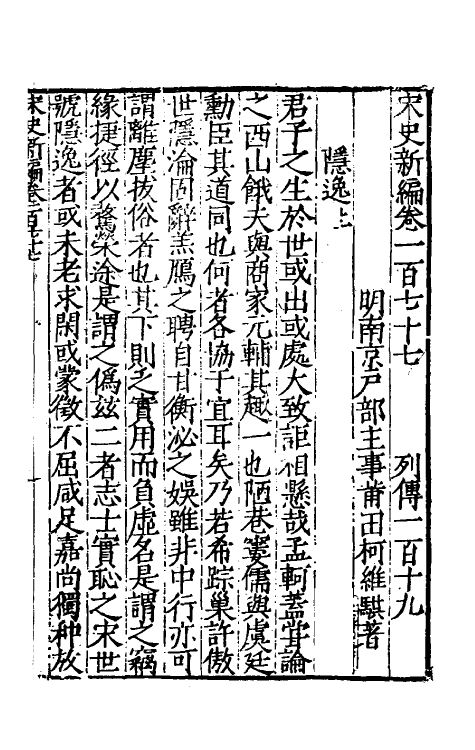 宋史新編卷一百七十七　　列傳一百十九
明南京戶部主事莆田柯維騏著
隱逸上
君子之生於世或出或處大致詎相懸哉孟軻蓋甞論
之西山餓夫與商家元輔其趣一也陋巷窶儒與虞廷
勳臣其道同也何者各協于宜耳矣乃若希踪巢許傲
世隱淪固辭羔鴈之聘自甘衡泌之娛雖非中行亦可
謂離塵拔俗者也其下則乏實用而負虛名是謂之竊
緣捷徑以騖榮途是謂之僞兹二者志士實恥之宋世
號隱逸者或未老求閑或蒙徵不屈咸足嘉尚獨种放
宋史新編卷一百七十七